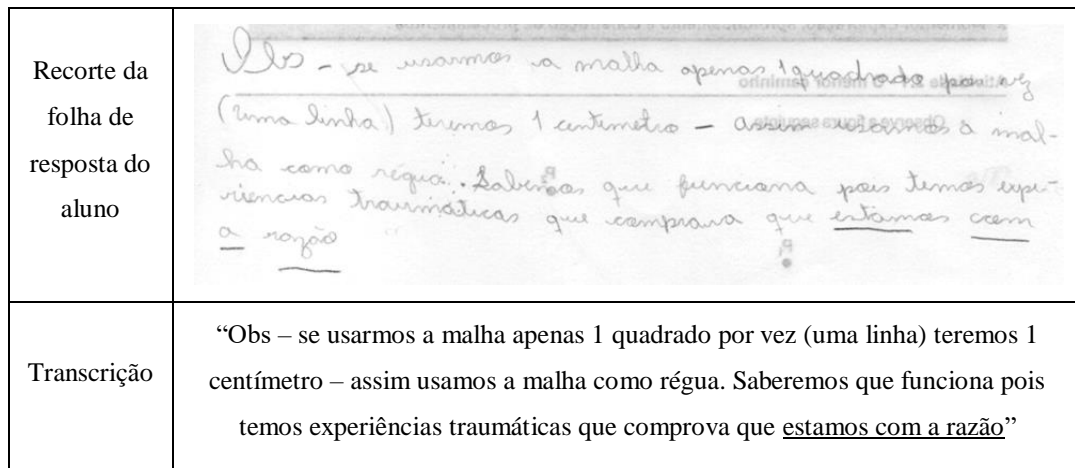 Recorte da
folha de
resposta do
aluno
Obs - se usarmos a malha apenas 1 quadrado por vez
(uma linha) teremos 1 centimetro - assim usamos a mal-
ha como régua. Sabemos que funciona pois temos expe-
riencias traumáticas que comprova que estamos com
a razão
Atividade 2.1 O menor caminho
Observe a figura seguinte
Transcrição
“Obs – se usarmos a malha apenas 1 quadrado por vez (uma linha) teremos 1
centímetro – assim usamos a malha como régua. Saberemos que funciona pois
temos experiências traumáticas que comprova que estamos com a razão”